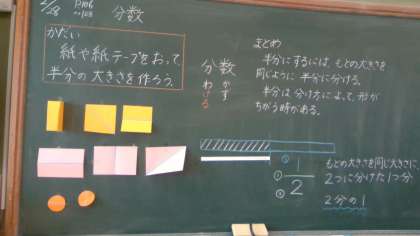 2/28 P106
分数
かだい
紙や紙テープをおって
半分の大きさを作ろう。
分数
わける
かず
まとめ
半分にするには、もとの大きさを
同じように半分に分ける。
半分は分け方によって、形が
ちがう時がある。
②
①
1
2
③
もとの大きさを同じ大きさに
2つに分けた1つ分
2分の1